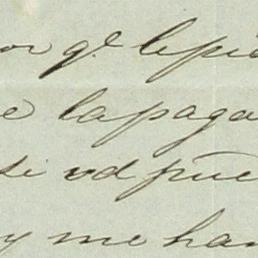 or qe. le pid
e la paga
si vd pue
y me han